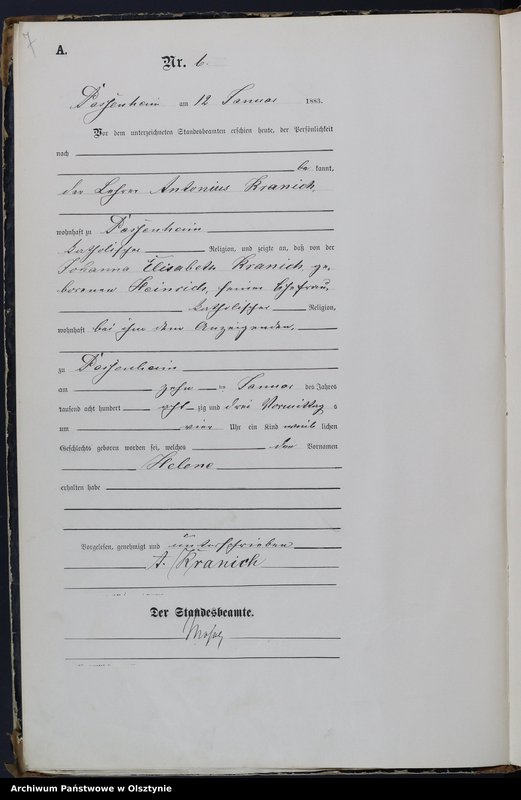 7
A.
Nr. 6.
Passenheim am 12 Januar 1883.
Vor dem unterzeichneten Standesbeamten erschien heute, der Persönlichkeit
nach
be kannt,
der Lehrer Antonius Kranich,
wohnhaft zu Passenheim
katholischer Religion, und zeigte an, daß von der
Johanna Elisabeth Kranich, ge-
borenen Heinrich, seiner Ehefrau,
katholischer Religion,
wohnhaft bei ihm dem Anzeigenden,
zu Passenheim
am zehn ten Januar des Jahres
tausend acht hundert acht zig und drei Vormittag s
um vier Uhr ein Kind weib lichen
Geschlechts geboren worden sei, welches den Vornamen
Helene
erhalten habe
Vorgelesen, genehmigt und unterschrieben
A. Kranich
Der Standesbeamte.
Archiwum Państwowe w Olsztynie